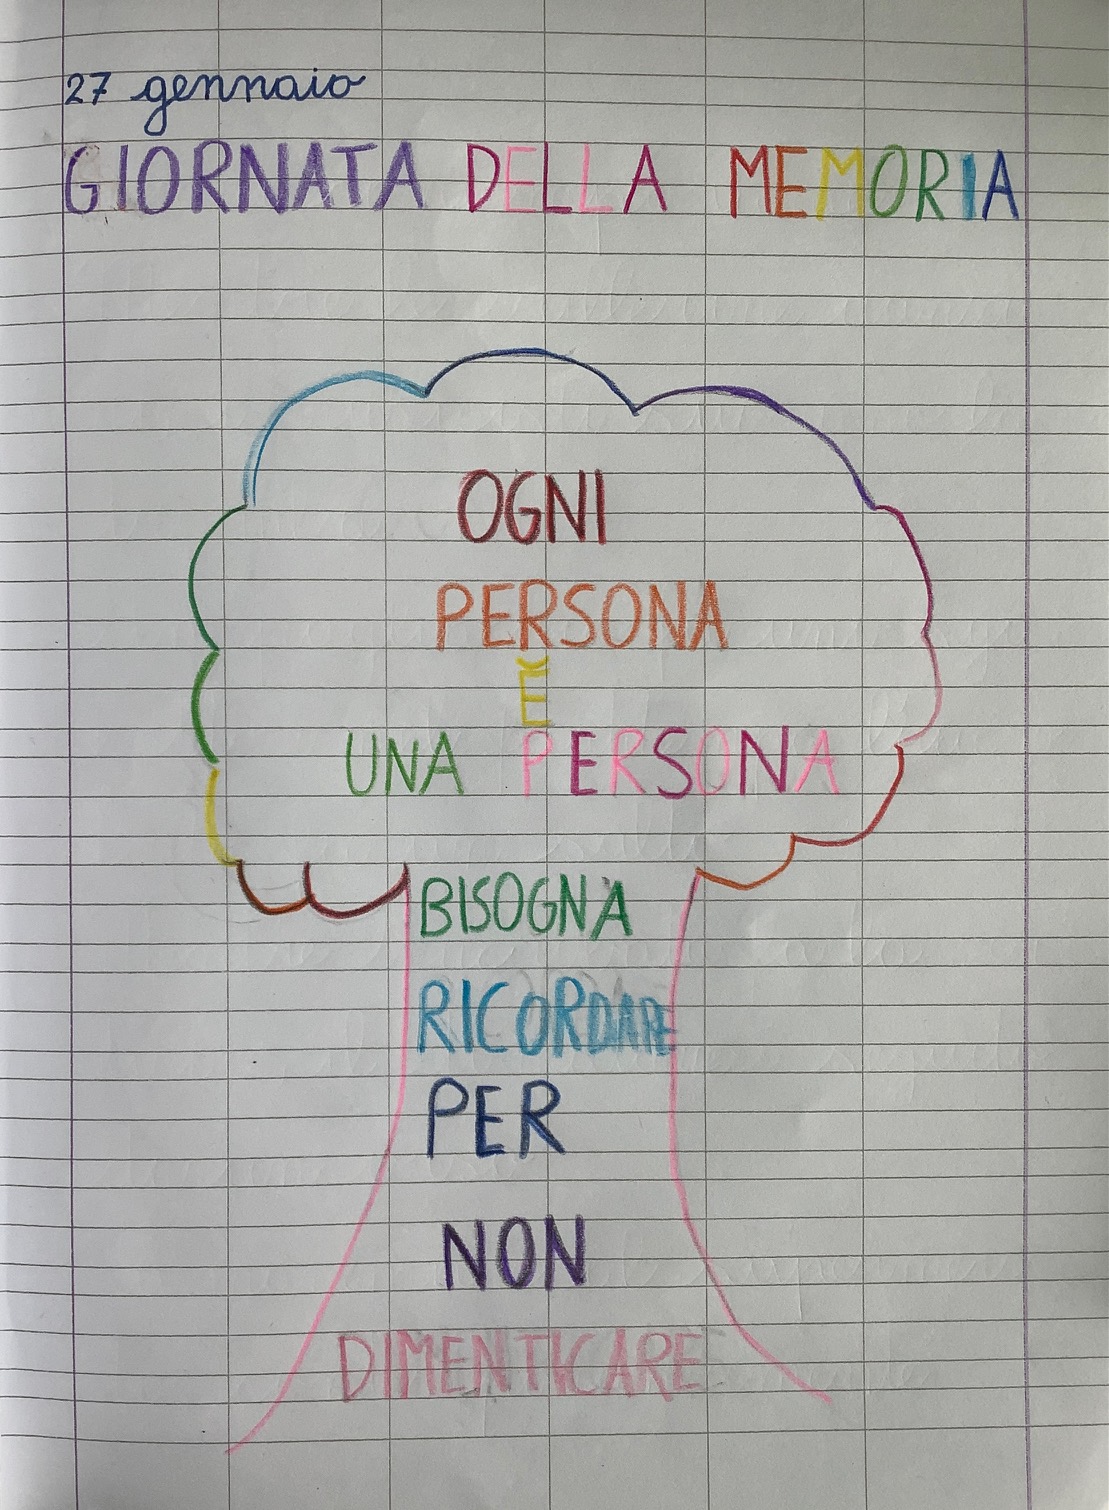 27 gennaio
GIORNATA DELLA MEMORIA
OGNI
PERSONA
È
UNA PERSONA
BISOGNA
RICORDARE
PER
NON
DIMENTICARE